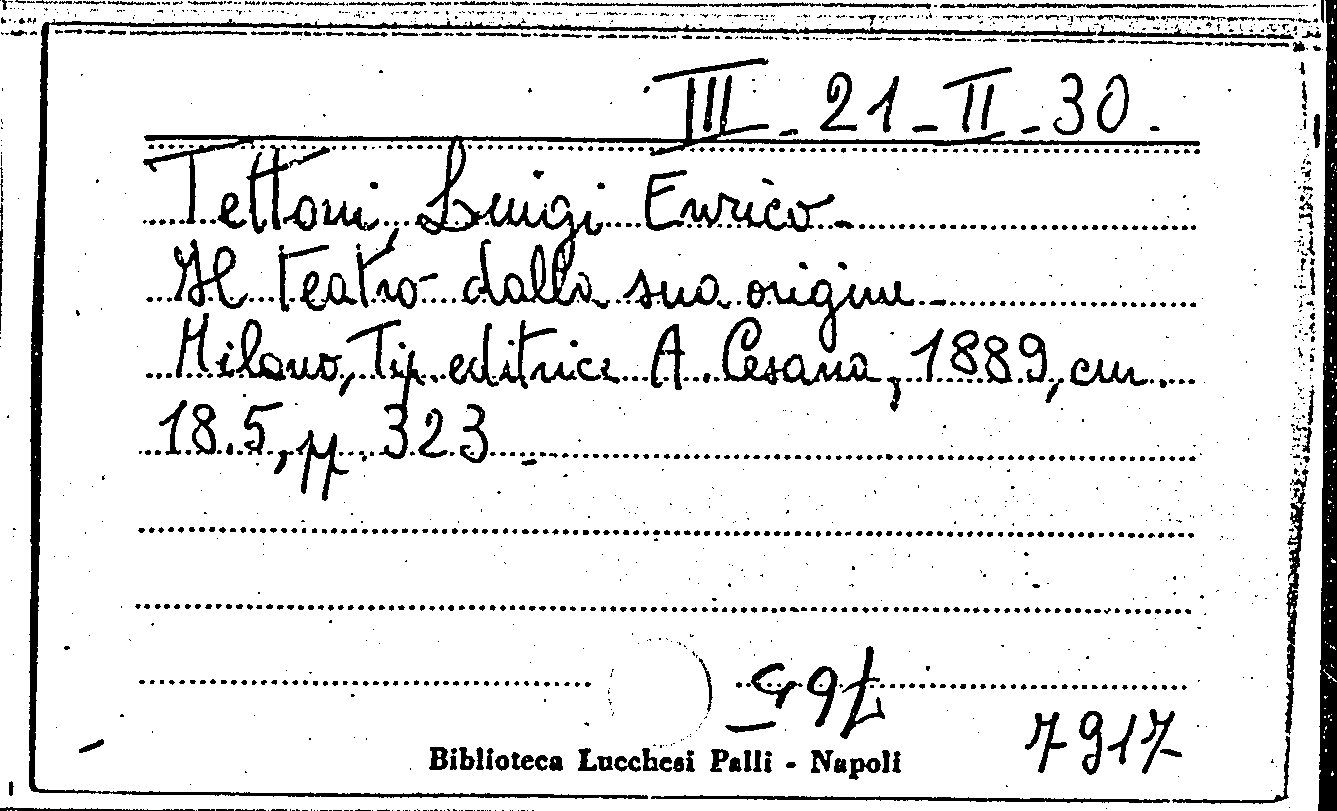 III - 21 - II - 30.
Tettoni, Luigi Enrico -
Il teatro dalla sua origine -
Milano, Tip. editrice A. Cesana, 1889, cm.
18.5, pp. 323 -
7917
Biblioteca Lucchesi Palli - Napoli